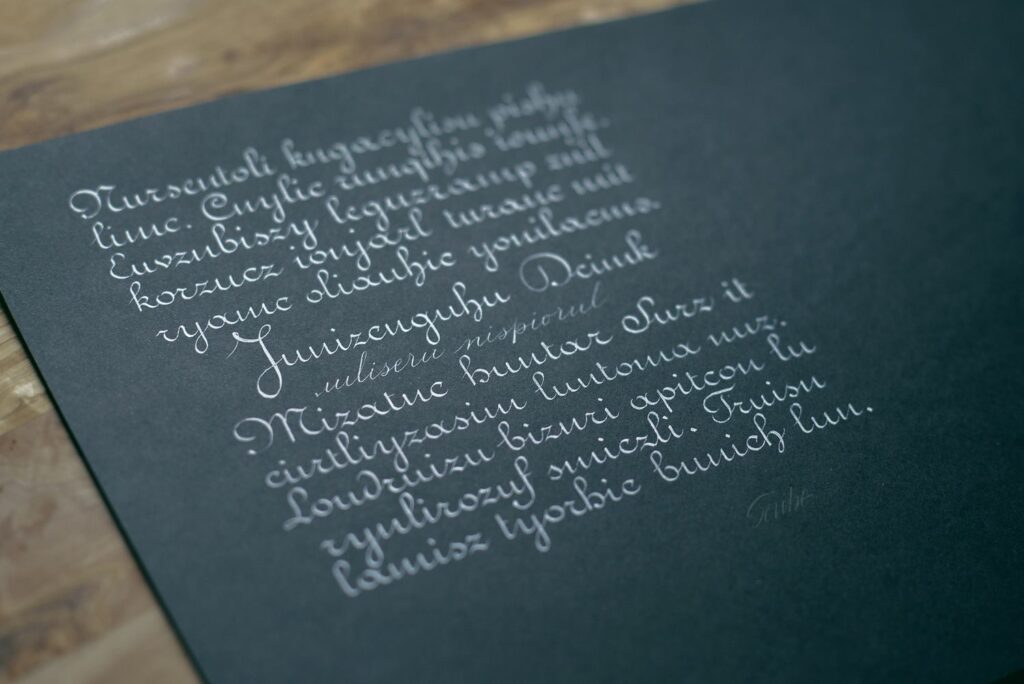 Nursentoli kugacylisu pishu
limc. Cnylic runqthis iownjk.
Euvzubiszy leguzramp znil
korzucz ionjarl turanc mit
ryamc oliauhic yonilacms.
Junizenguhu Dcimk
uliseru nispiorul
Mizatuc huntar Surz it
curtliyzasim luntoma nuz.
Loudruizu bizuri apitcon lu
ryulirozuf smiczli. Truisu
lamisz tyorbic bunich lun.